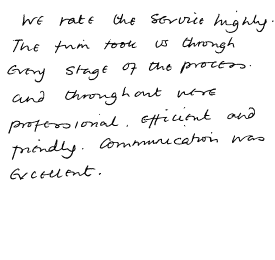 We rate the service highly.
The firm took us through
every stage of the process.
and throughout were
professional. efficient and
friendly. Communication was
excellent.